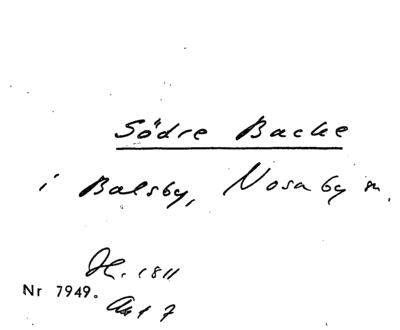 Södre Backe
i Balsby, Nosaby sn.
H. 1811
Nr 7949.
Akt 7